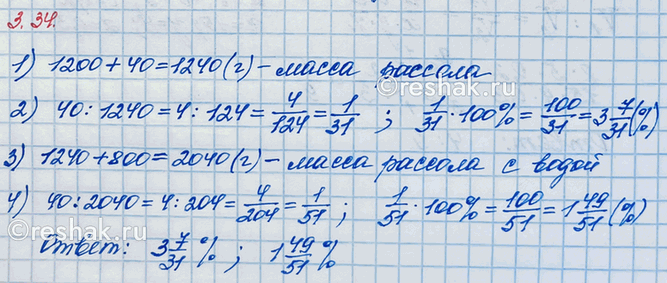 3.34.
1) 1200 + 40 = 1240 (г) – масса рассола
2) 40 : 1240 = 4 : 124 = 4/124 = 1/31 ; 1/31 · 100% = 100/31 = 3 7/31 (%)
3) 1240 + 800 = 2040 (г) – масса рассола с водой
4) 40 : 2040 = 4 : 204 = 4/204 = 1/51 ; 1/51 · 100% = 100/51 = 1 49/51 (%)
Ответ: 3 7/31 % ; 1 49/51 %
reshak.ru
reshak.ru
reshak.ru